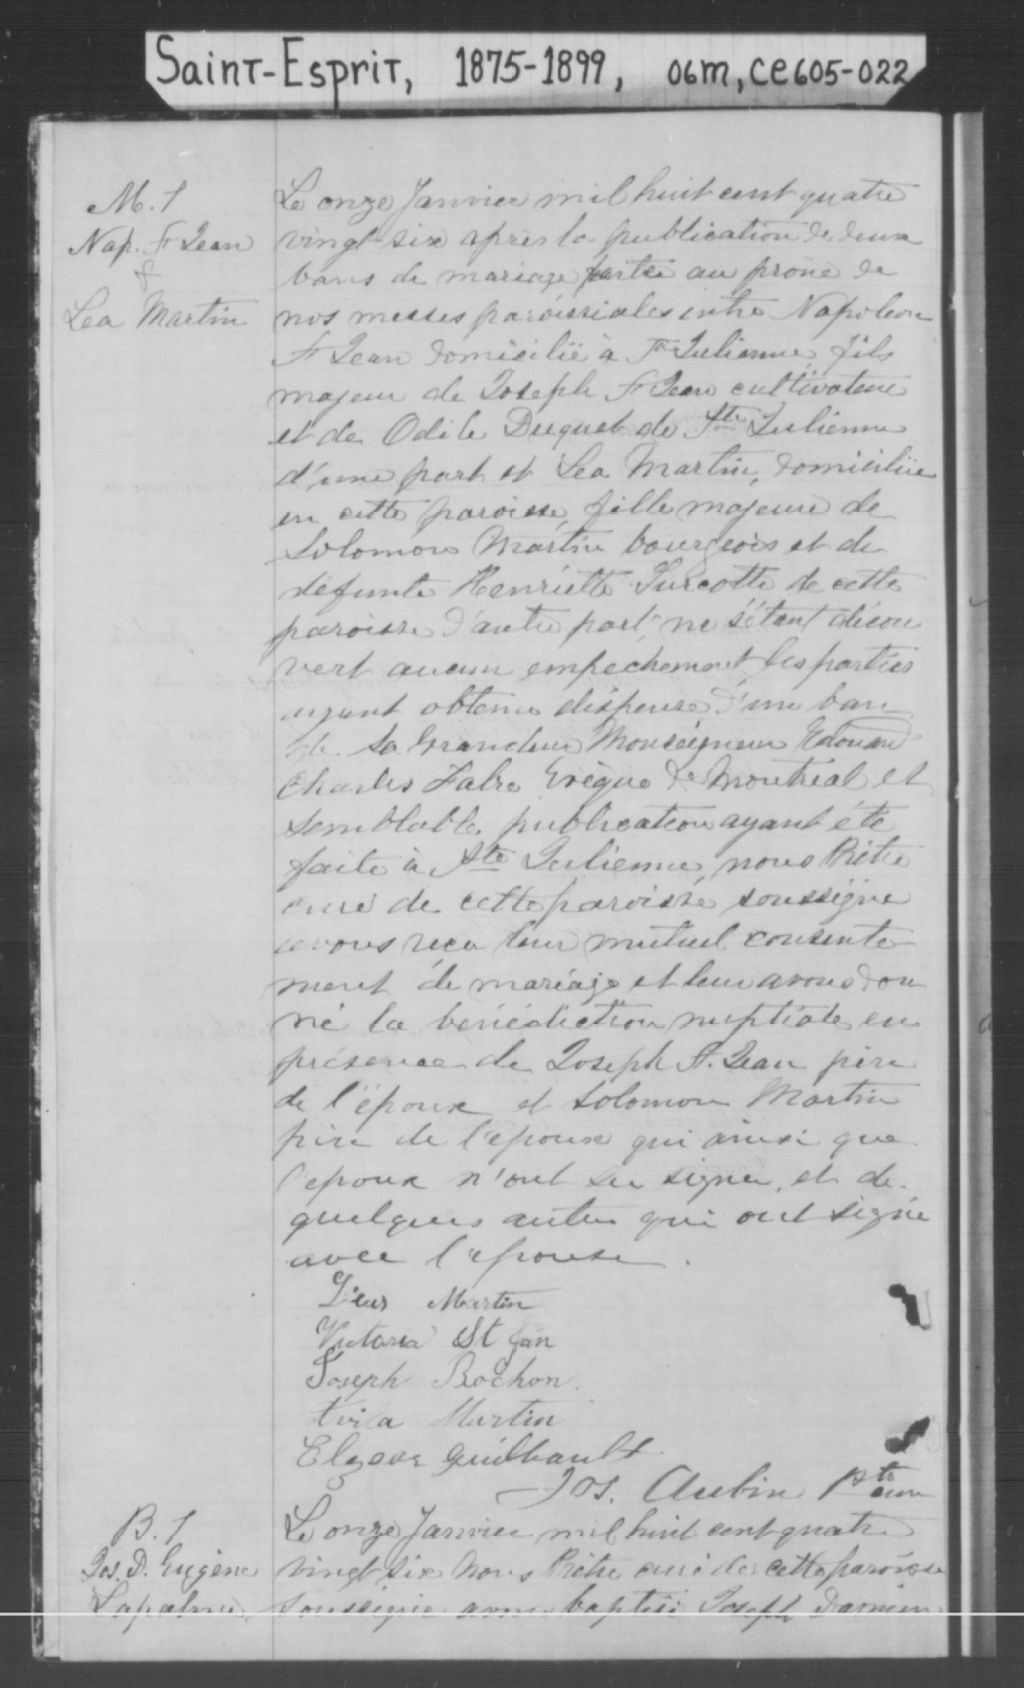 Saint-Esprit, 1875-1899, 06m, ce605-022
M. 1
Nap. St Jean
&
Lea Martin
Le onze Janvier mil huit cent quatre
vingt-six après la publication de deux
bans de mariage faite au prône de
nos messes paroissiales entre Napoleon
St Jean domicilié à Ste Julienne, fils
majeur de Joseph St Jean cultivateur
et de Odile Duquet de Ste Julienne
d'une part et Lea Martin, domiciliée
en cette paroisse, fille majeure de
Solomon Martin bourgeois et de
défunte Henriette Turcotte de cette
paroisse d'autre part, ne s'étant décou
vert aucun empechement, les parties
ayant obtenu dispense d'un ban
de Sa Grandeur Monseigneur Edouard
Charles Fabre Evêque de Montreal et
semblable publication ayant été
faite à Ste Julienne, nous Prêtre
curé de cette paroisse soussigné
avons reçu leur mutuel consente
ment de mariage et leur avons don
né la bénédiction nuptiale en
présence de Joseph St. Jean père
de l'époux et Solomon Martin
père de l'epouse qui ainsi que
l'epoux n'ont su signer, et de
quelques autres qui ont signé
avec l'epouse.
Martin
Victoria St Jan
Joseph Rochon
Avila Martin
Elzear Guilbault
Jos. Aubin Ptre curé
B. 1
Jos. D. Eugène
Lapalme
Le onze Janvier mil huit cent quatre
vingt six Nous Prêtre curé de cette paroisse
soussigné avons baptisé Joseph Damien